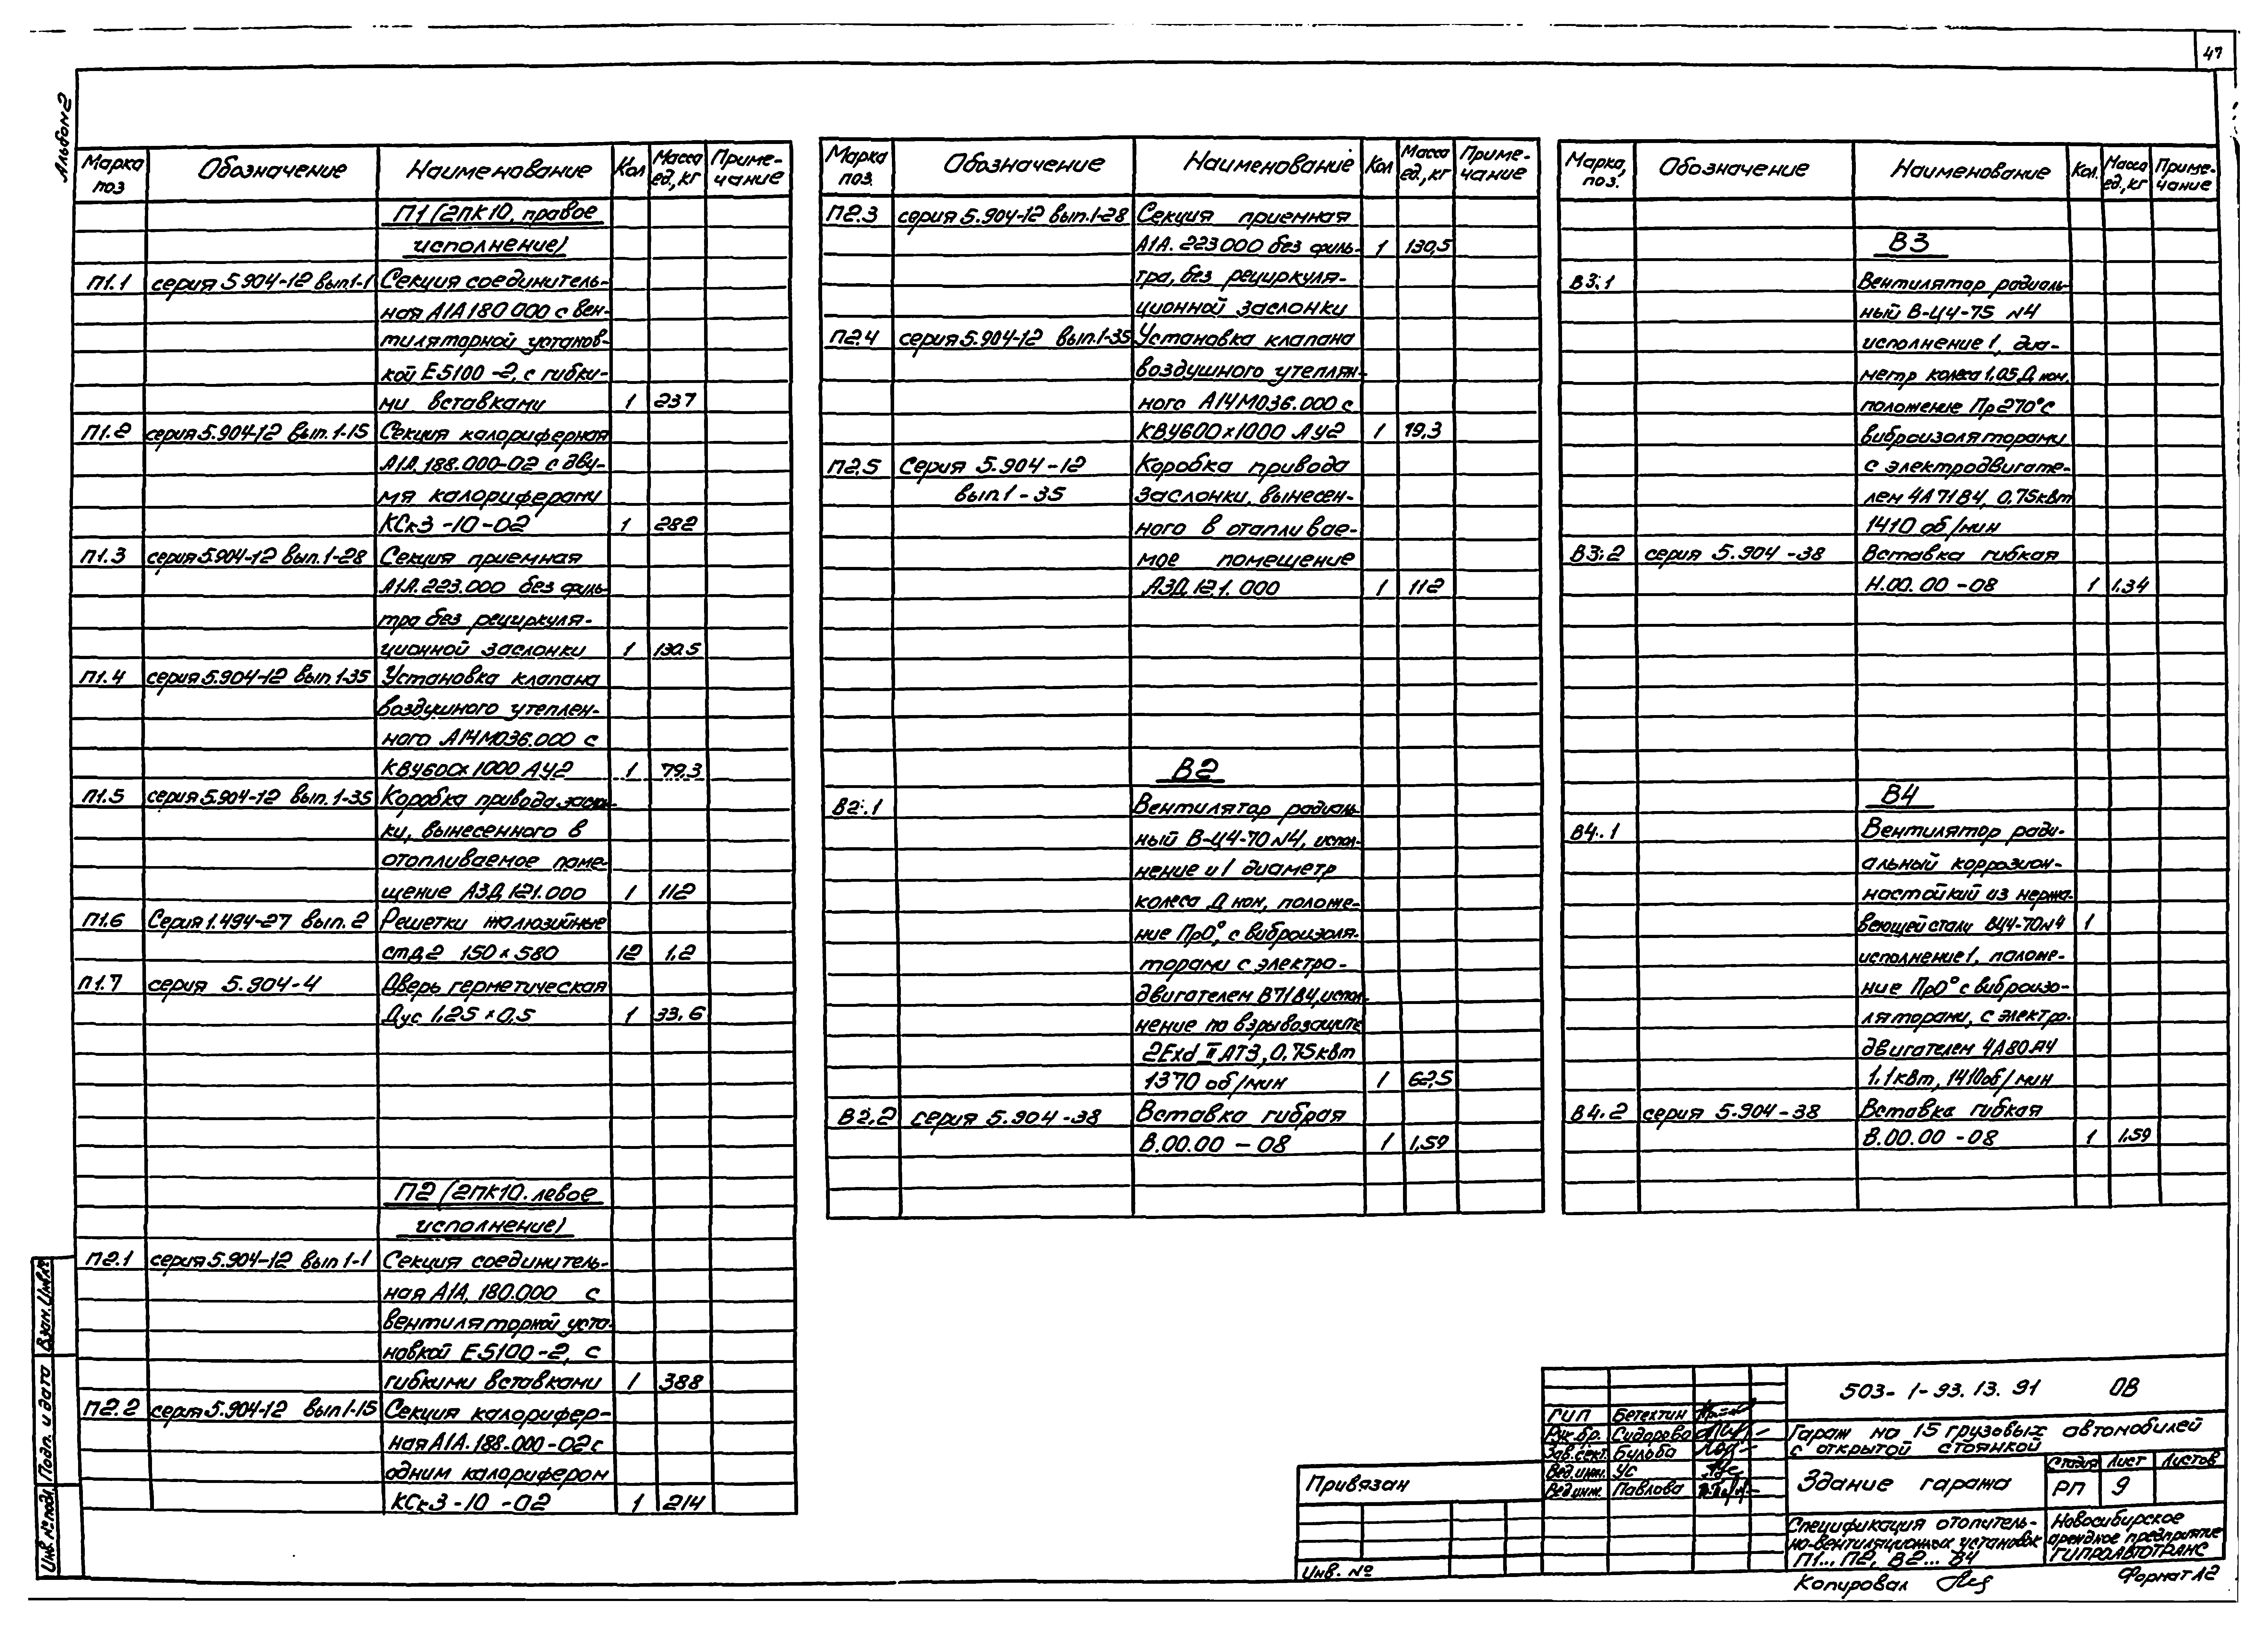 47
Альбом 2
Марка поз Обозначение Наименование Кол Масса ед., кг Приме-чание
П1 (2ПК10, правое
исполнение)
П1.1 серия 5.904-12 вып1-1 Секция соединитель-
ная А1А180 000 с вен-
тиляторной установ-
кой Е5100-2, с гибки-
ми вставками 1 237
П1.2 серия 5.904-12 вып. 1-15 Секция калориферная
А1А.188.000-02 с дву-
мя калориферами
КСк3-10-02 1 282
П1.3 серия 5.904-12 вып. 1-28 Секция приемная
А1А.223.000 без филь-
тра без рециркуля-
ционной заслонки 1 130.5
П1.4 серия 5.904-12 вып. 1-35 Установка клапана
воздушного утеплен-
ного А14М036.000 с
КВУ600х1000 АУ2 1 79,3
П1.5 серия 5.904-12 вып. 1-35 Коробка привода заслон-
ки, вынесенного в
отопливаемое поме-
щение АЗД 121.000 1 112
П1.6 Серия 1.494-27 вып. 2 Решетки жалюзийные
стд2 150х580 12 1,2
П1.7 серия 5.904-4 Дверь герметическая
Дус 1,25х0,5 1 33,6
П2 (2ПК10. левое
исполнение)
П2.1 серия 5.904-12 вып 1-1 Секция соединитель-
ная А1А. 180.000 с
вентиляторной уста-
новкой Е5100-2, с
гибкими вставками 1 388
П2.2 серия 5.904-12 вып 1-15 Секция калорифер-
ная А1А.188.000-02 с
одним калорифером
КСк3-10-02 1 214
Марка поз. Обозначение Наименование Кол Масса ед., кг Приме-чание
П2.3 серия 5.904-12 вып.1-28 Секция приемная
А1А.223000 без филь- 1 130,5
тра, без рециркуля-
ционной заслонки
П2.4 серия 5.904-12 вып.1-35 Установка клапана
воздушного утеплян-
ного А14М036.000 с
КВУ600х1000 АУ2 1 79,3
П2.5 Серия 5.904-12 Коробка привода
вып.1-35 заслонки, вынесен-
ного в отапливае-
мое помещение
АЗД 121.000 1 112
В2
В2.1 Вентилятор радиаль-
ный В-Ц4-70 N4, испол-
нение и1 диаметр
колеса Д ном, положе-
ние Пр0°, с виброизоля-
торами с электро-
двигателем В71В4, испол-
нение по взрывозащите
2Exd II АТ3, 0,75 квт
1370 об/мин 1 62,5
В2.2 серия 5.904-38 Вставка гибрая
В.00.00-08 1 1,59
Марка, поз. Обозначение Наименование Кол. Масса ед., кг Приме-чание
В3
В3.1 Вентилятор радиаль-
ный В-Ц4-75 N4
исполнение 1, диа-
метр колеса 1,05 Д ном,
положение Пр270° с
виброизоляторами
с электродвигате-
лем 4А71В4, 0,75квт
1410 об/мин
В3.2 серия 5.904-38 Вставка гибкая
Н.00.00-08 1 1,34
В4
В4.1 Вентилятор ради-
альный коррозион-
ностойкий из нержа-
веющей стали ВЦ4-70N4 1
исполнение 1, положе-
ние Пр0° с виброизо-
ляторами, с электро-
двигателем 4А80А4
1.1 квт, 1410 об/мин
В4.2 серия 5.904-38 Вставка гибкая
В.00.00-08 1 1,59
Взам. Инв.№
Подп. и дата
Инв. № подл.
Привязан
Инв. №
ГИП Бетехтин
Рук.бр. Сидорова
Зав.сект. Бульба
Вед.инж. Ус
Вед.инж. Павлова
503-1-93.13.91 ОВ
Гараж на 15 грузовых автомобилей
с открытой стоянкой
Здание гаража
Стадия Лист Листов
РП 9
Спецификация отопитель-
но-вентиляционных установок
П1...П2, В2...В4
Новосибирское
арендное предприятие
ГИПРОАВТОТРАНС
Копировал
Формат А2